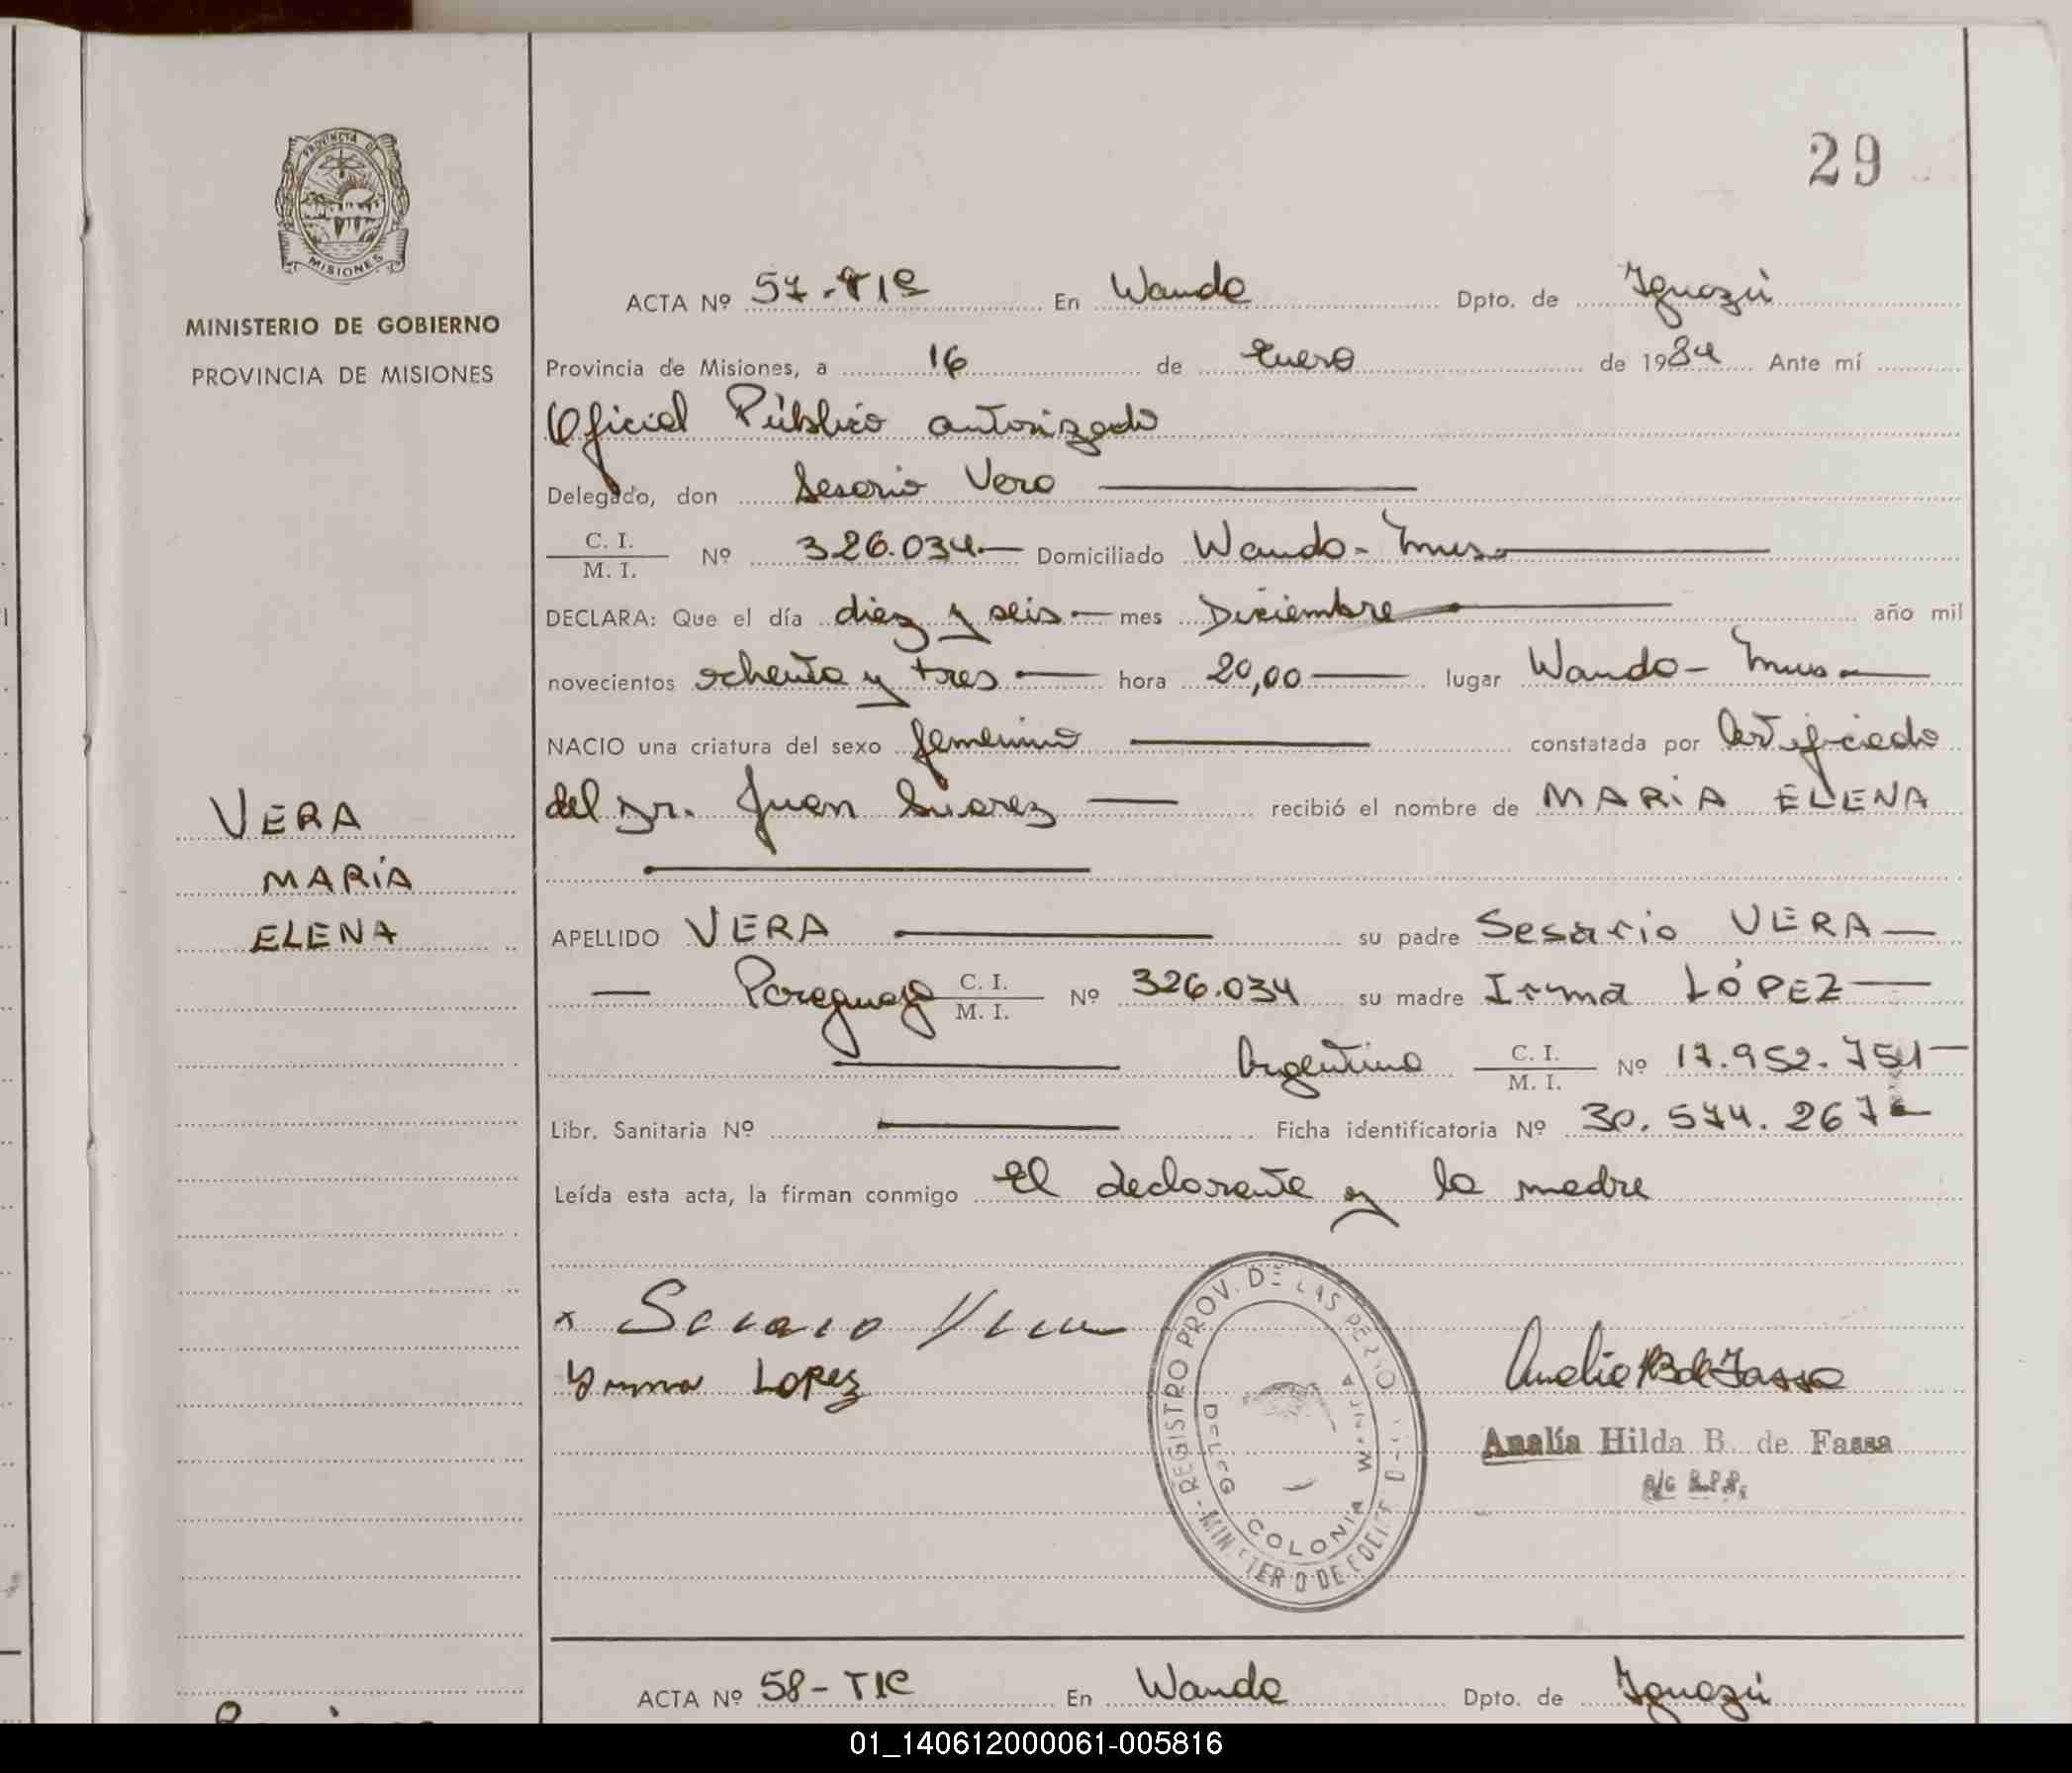 29
PROVINCIA DE
MISIONES
MINISTERIO DE GOBIERNO
PROVINCIA DE MISIONES
VERA
MARÍA
ELENA
ACTA Nº 57-TIC En Wanda Dpto. de Iguazú
Provincia de Misiones, a 16 de Enero de 1984 Ante mí
Oficial Público autorizado
Delegado, don Sesario Vera
C. I.
M. I. Nº 326.034 Domiciliado Wanda - Mnes
DECLARA: Que el día diez y seis mes Diciembre año mil
novecientos ochenta y tres hora 20,00 lugar Wanda - Mnes
NACIO una criatura del sexo femenino constatada por Certificado
del Dr. Juan Suarez recibió el nombre de MARÍA ELENA
APELLIDO VERA su padre Sesario VERA
Paraguayo C. I.
M. I. Nº 326.034 su madre Irma LÓPEZ
Argentina C. I.
M. I. Nº 17.952.754
Libr. Sanitaria Nº Ficha identificatoria Nº 30.574.267
Leída esta acta, la firman conmigo El declarante y la madre
x Sesario Vera
Yrma LOPez
REGISTRO PROV. DE LAS PERSO
COLONIA WANDA
Amalia B de Fassa
Analía Hilda B. de Fassa
ACTA Nº 58-TIC En Wanda Dpto. de Iguazú
01_140612000061-005816